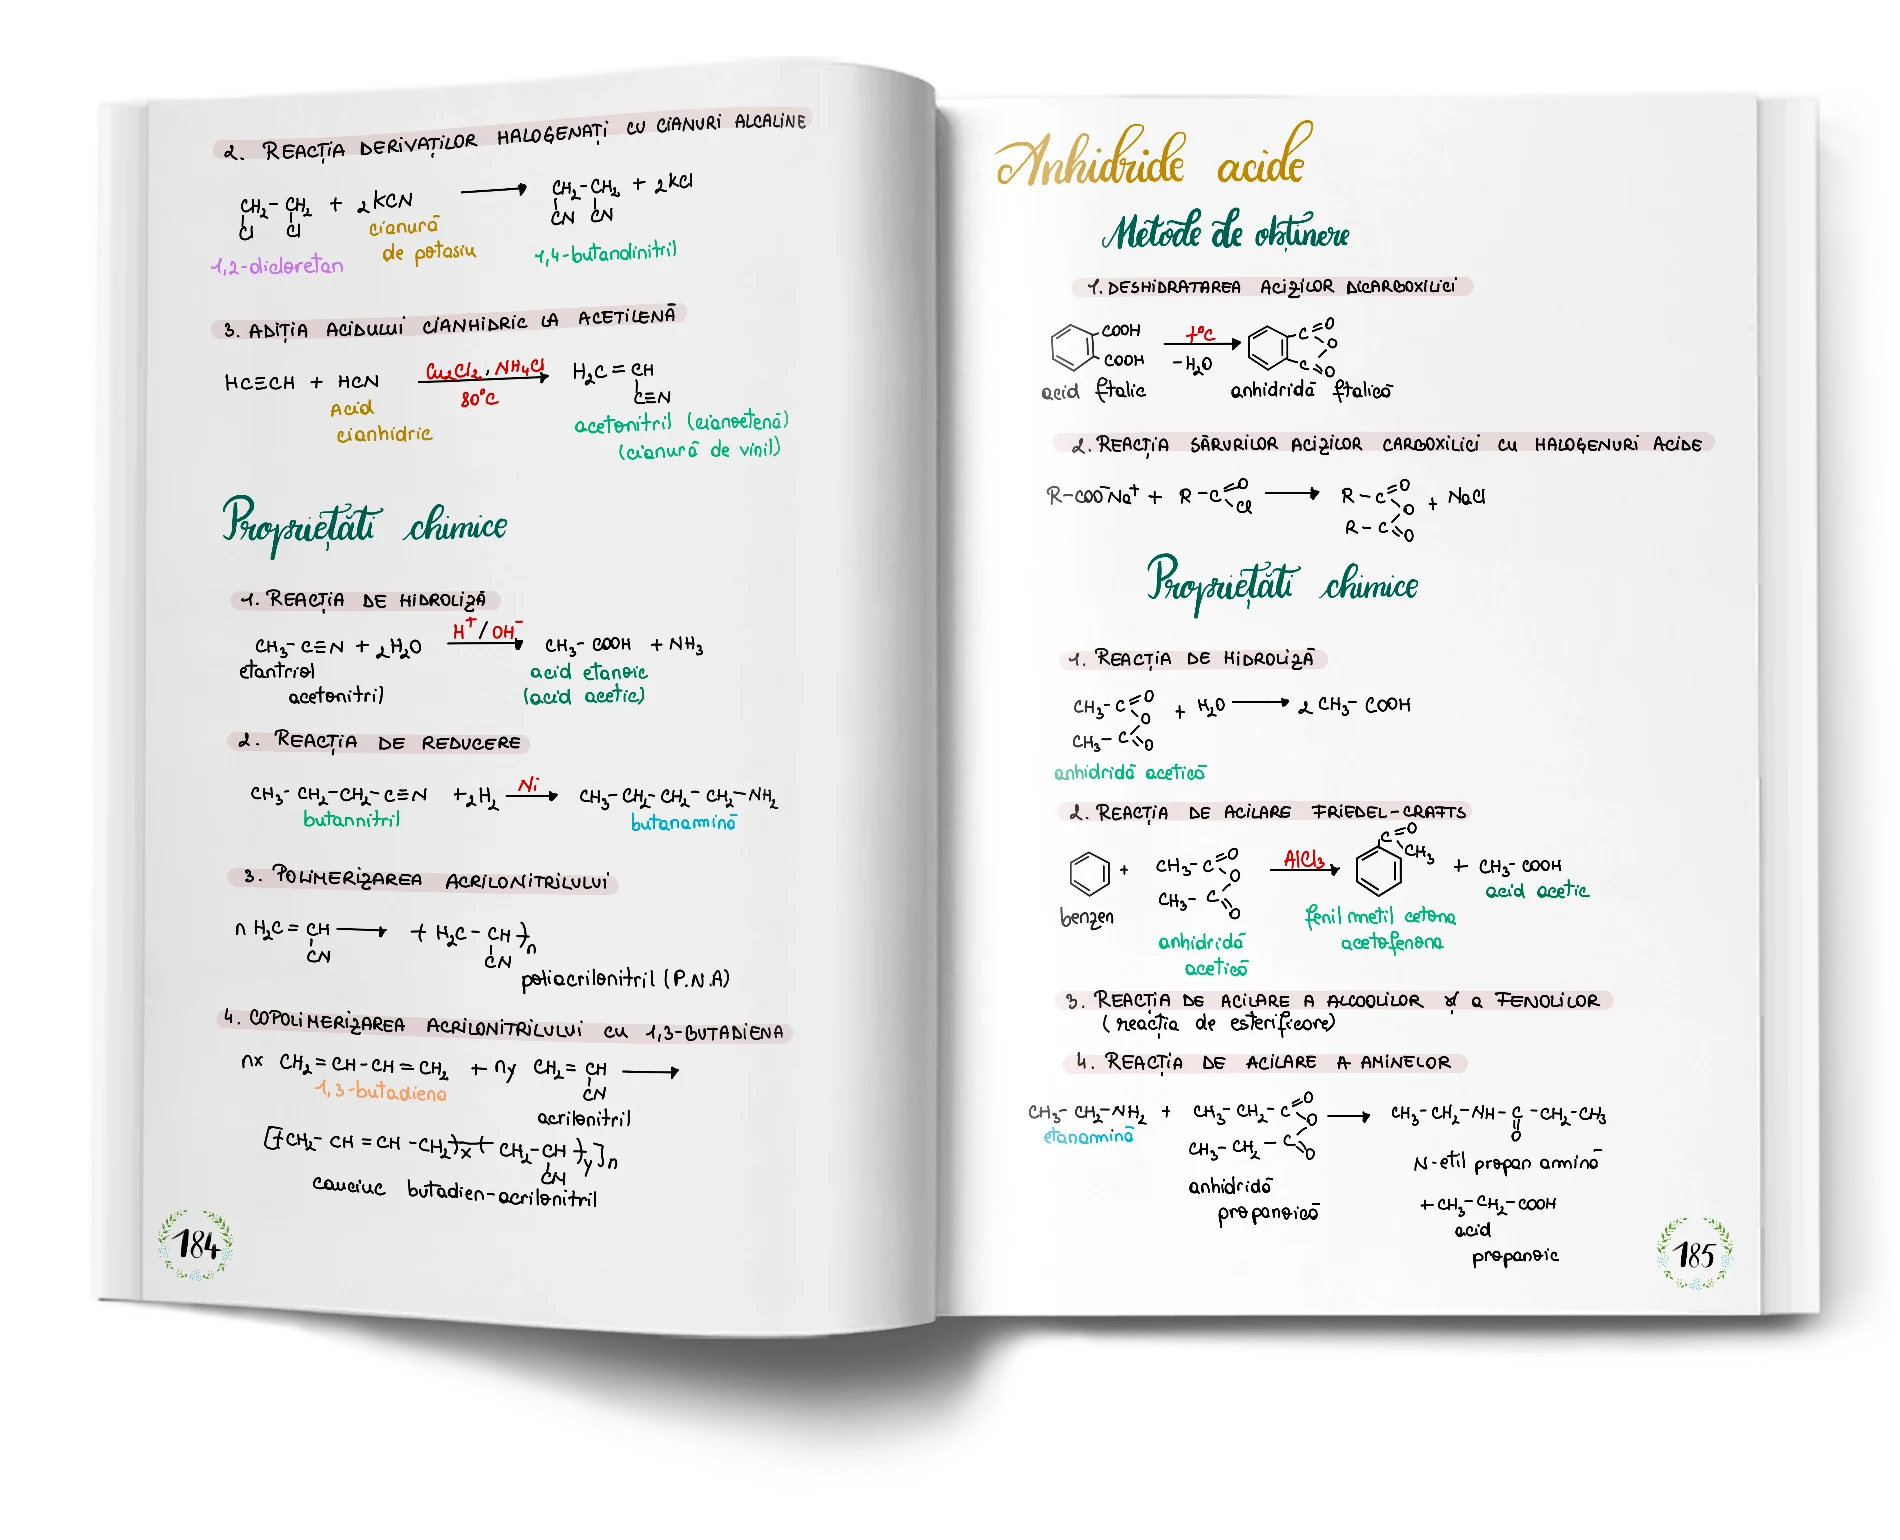 2. REACȚIA DERIVAȚILOR HALOGENAȚI CU CIANURI ALCALINE
CH₂-CH₂ + 2KCN ⟶ CH₂-CH₂ + 2KCl
Cl Cl CN CN
1,2-dicloretan
cianură
de potasiu
1,4-butandinitril
3. ADIȚIA ACIDULUI CIANHIDRIC LA ACETILENĂ
HC≡CH + HCN ⟶ H₂C=CH
Cu₂Cl₂, NH₄Cl
80°C
C≡N
Acid
cianhidric
acetonitril (cianoetenă)
(cianură de vinil)
Proprietăți chimice
1. REACȚIA DE HIDROLIZĂ
H⁺/OH⁻
CH₃-C≡N + 2H₂O ⟶ CH₃-COOH + NH₃
etantriol
acetonitril
acid etanoic
(acid acetic)
2. REACȚIA DE REDUCERE
Ni
CH₃-CH₂-CH₂-C≡N +2H₂ ⟶ CH₃-CH₂-CH₂-CH₂-NH₂
butannitril butanamină
3. POLIMERIZAREA ACRILONITRILULUI
n H₂C=CH ⟶ (H₂C-CH)n
CN CN
poliacrilonitril (P.N.A)
4. COPOLIMERIZAREA ACRILONITRILULUI CU 1,3-BUTADIENA
nx CH₂=CH-CH=CH₂ + ny CH₂=CH ⟶
CN
1,3-butadiena
acrilonitril
[(CH₂-CH=CH-CH₂)x(CH₂-CH)y]n
CN
cauciuc butadien-acrilonitril
184
Anhidride acide
Metode de obținere
1. DESHIDRATAREA ACIZILOR DICARBOXILICI
COOH t°C C=O
COOH -H₂O O
C=O
acid ftalic anhidridă ftalică
2. REACȚIA SĂRURILOR ACIZILOR CARBOXILICI CU HALOGENURI ACIDE
R-COO⁻Na⁺ + R-C=O ⟶ R-C=O + NaCl
Cl O
R-C=O
Proprietăți chimice
1. REACȚIA DE HIDROLIZĂ
CH₃-C=O
O + H₂O ⟶ 2 CH₃-COOH
CH₃-C=O
anhidridă acetică
2. REACȚIA DE ACILARE FRIEDEL-CRAFTS
C=O
CH₃
+ CH₃-C=O AlCl₃ + CH₃-COOH
O
CH₃-C=O
benzen
anhidridă
acetică
fenil metil cetona
acetofenona
acid acetic
3. REACȚIA DE ACILARE A ALCOOLILOR și a FENOLILOR
(reacția de esterificare)
4. REACȚIA DE ACILARE A AMINELOR
CH₃-CH₂-NH₂ + CH₃-CH₂-C=O ⟶ CH₃-CH₂-NH-C-CH₂-CH₃
O O
CH₃-CH₂-C=O
etanamină
anhidridă
propanoică
N-etil propan amină
+ CH₃-CH₂-COOH
acid
propanoic
185